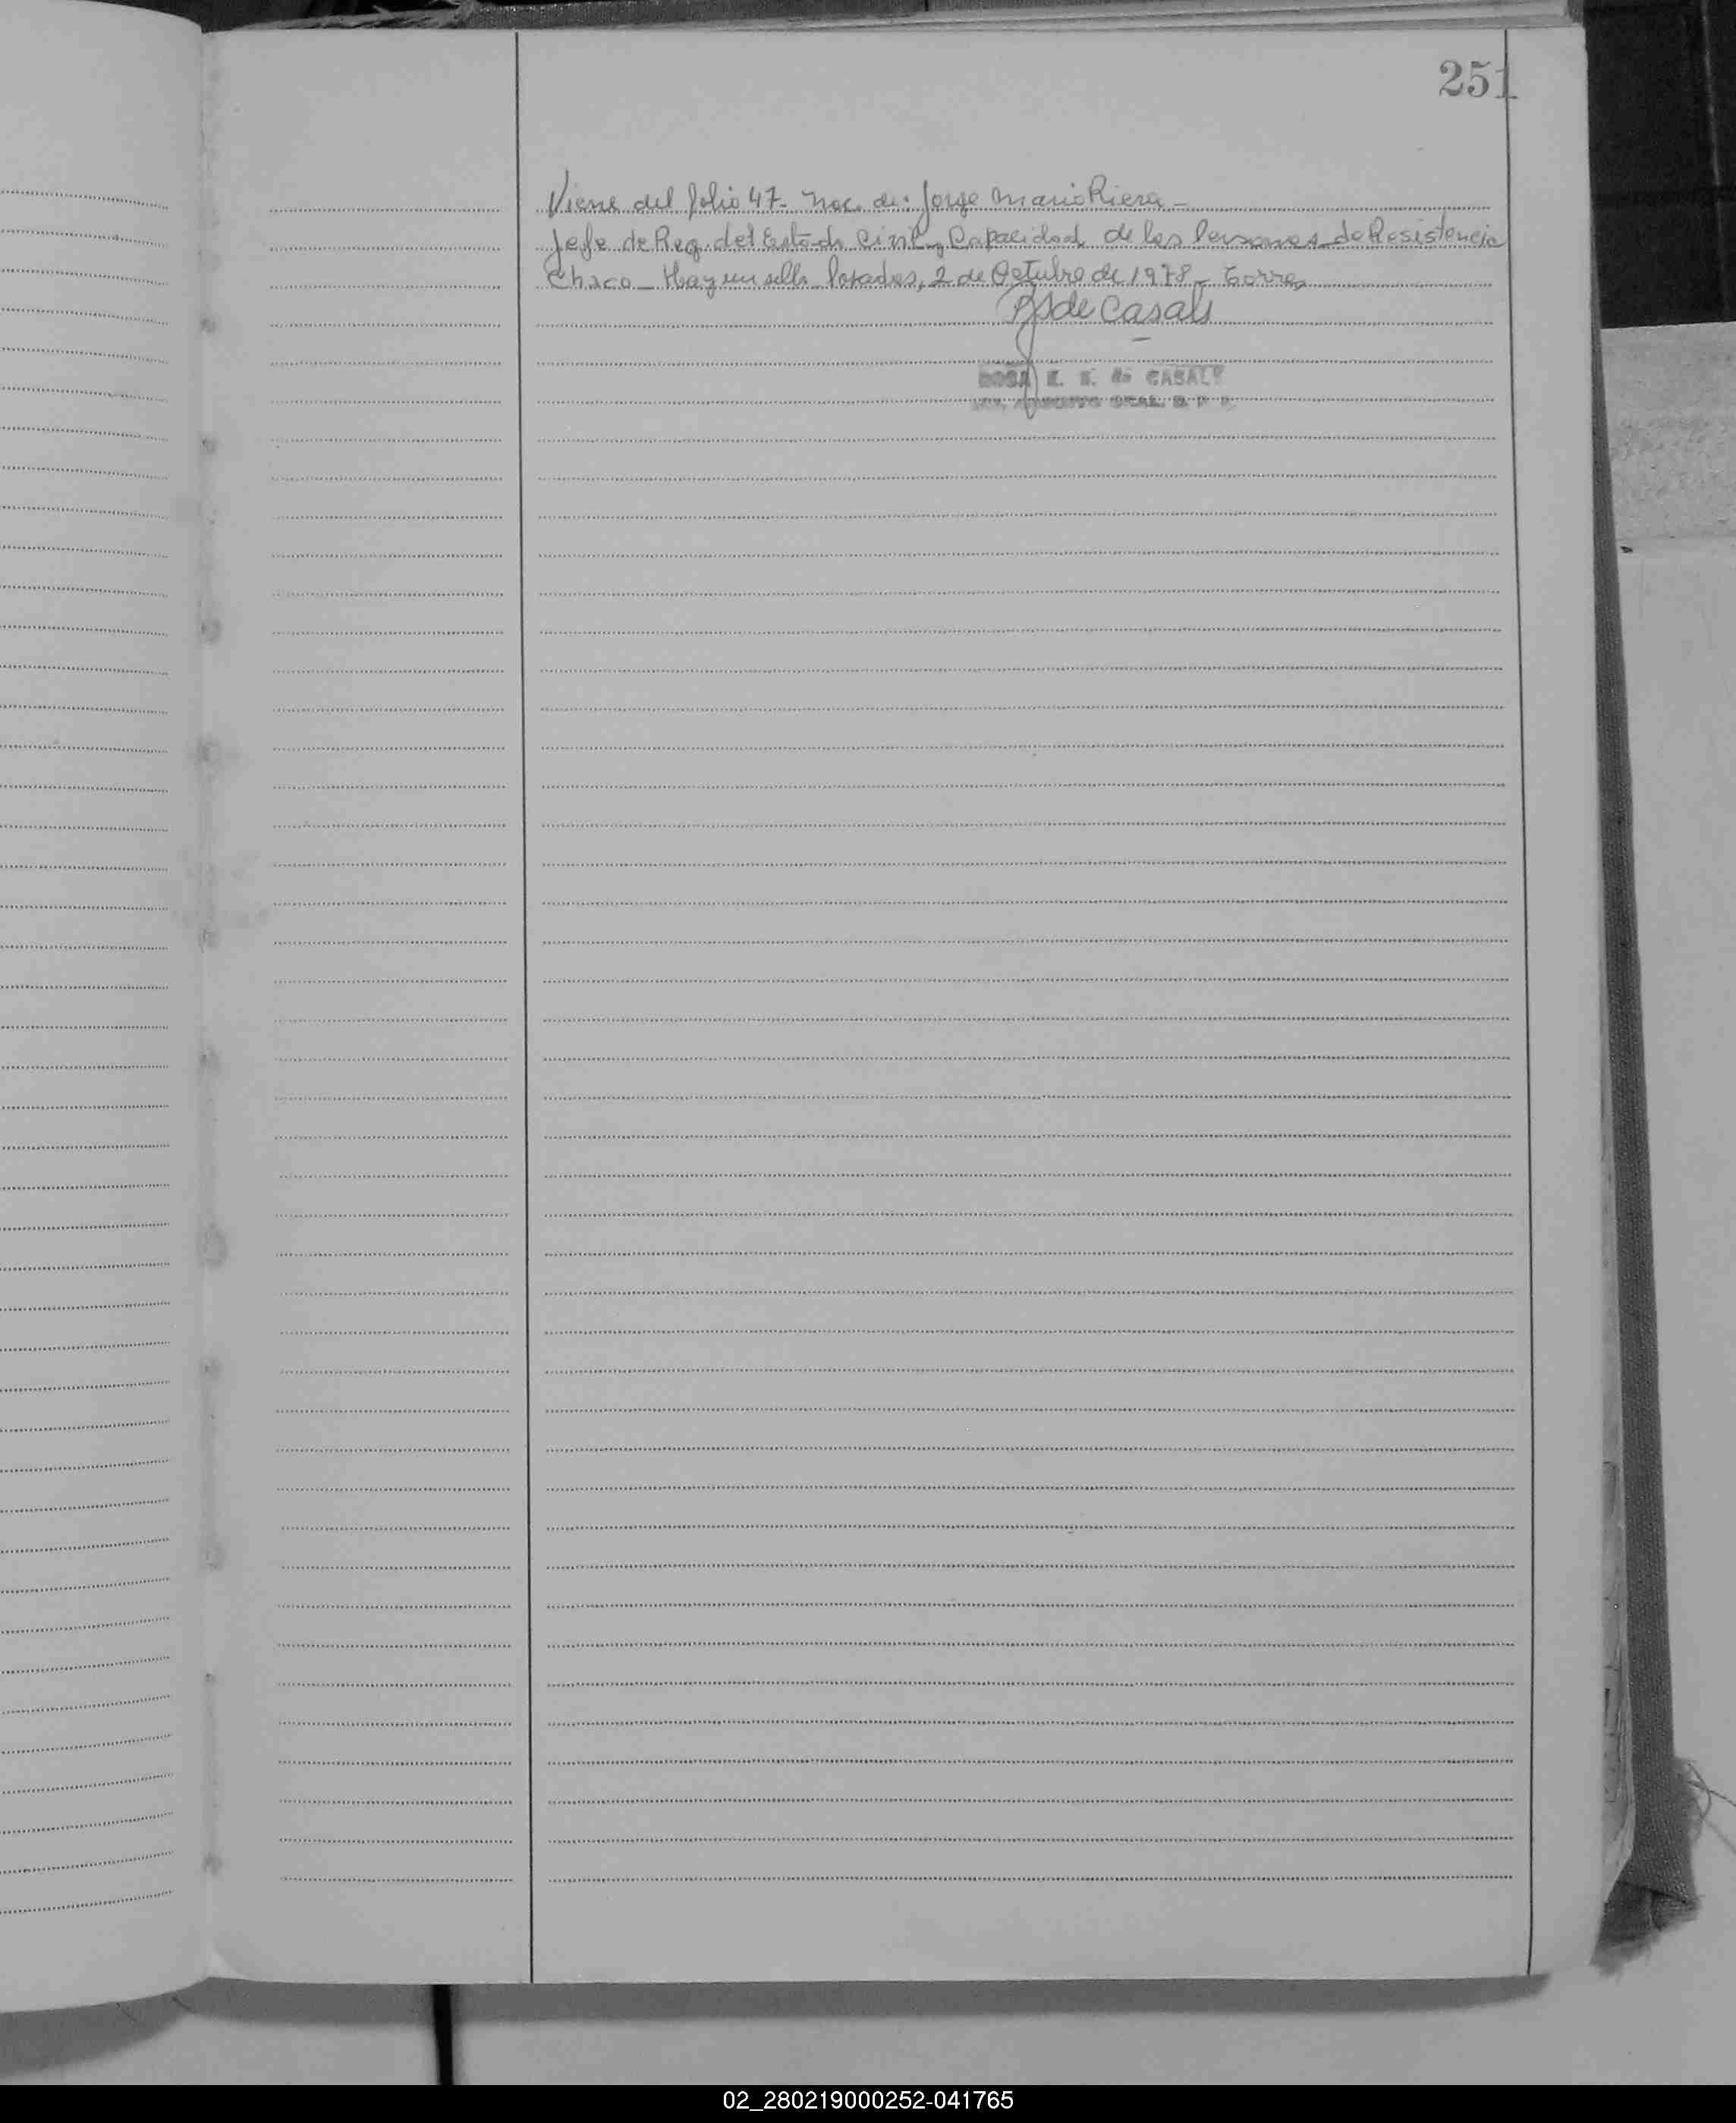 251
Viene del folio 47- Nac. de: Jorge Mario Riera -
Jefe de Reg. del Estado Civil y Capacidad de las Personas de Resistencia
Chaco - Hay un sello. Posadas, 2 de Octubre de 1978 - Torres
RS de Casals
ROSA E. S. de CASALS
02_280219000252-041765